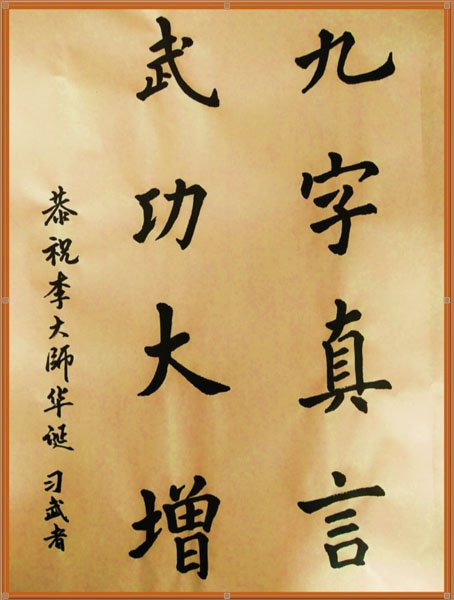 九字真言
武功大増
恭祝李大師华诞 习武者